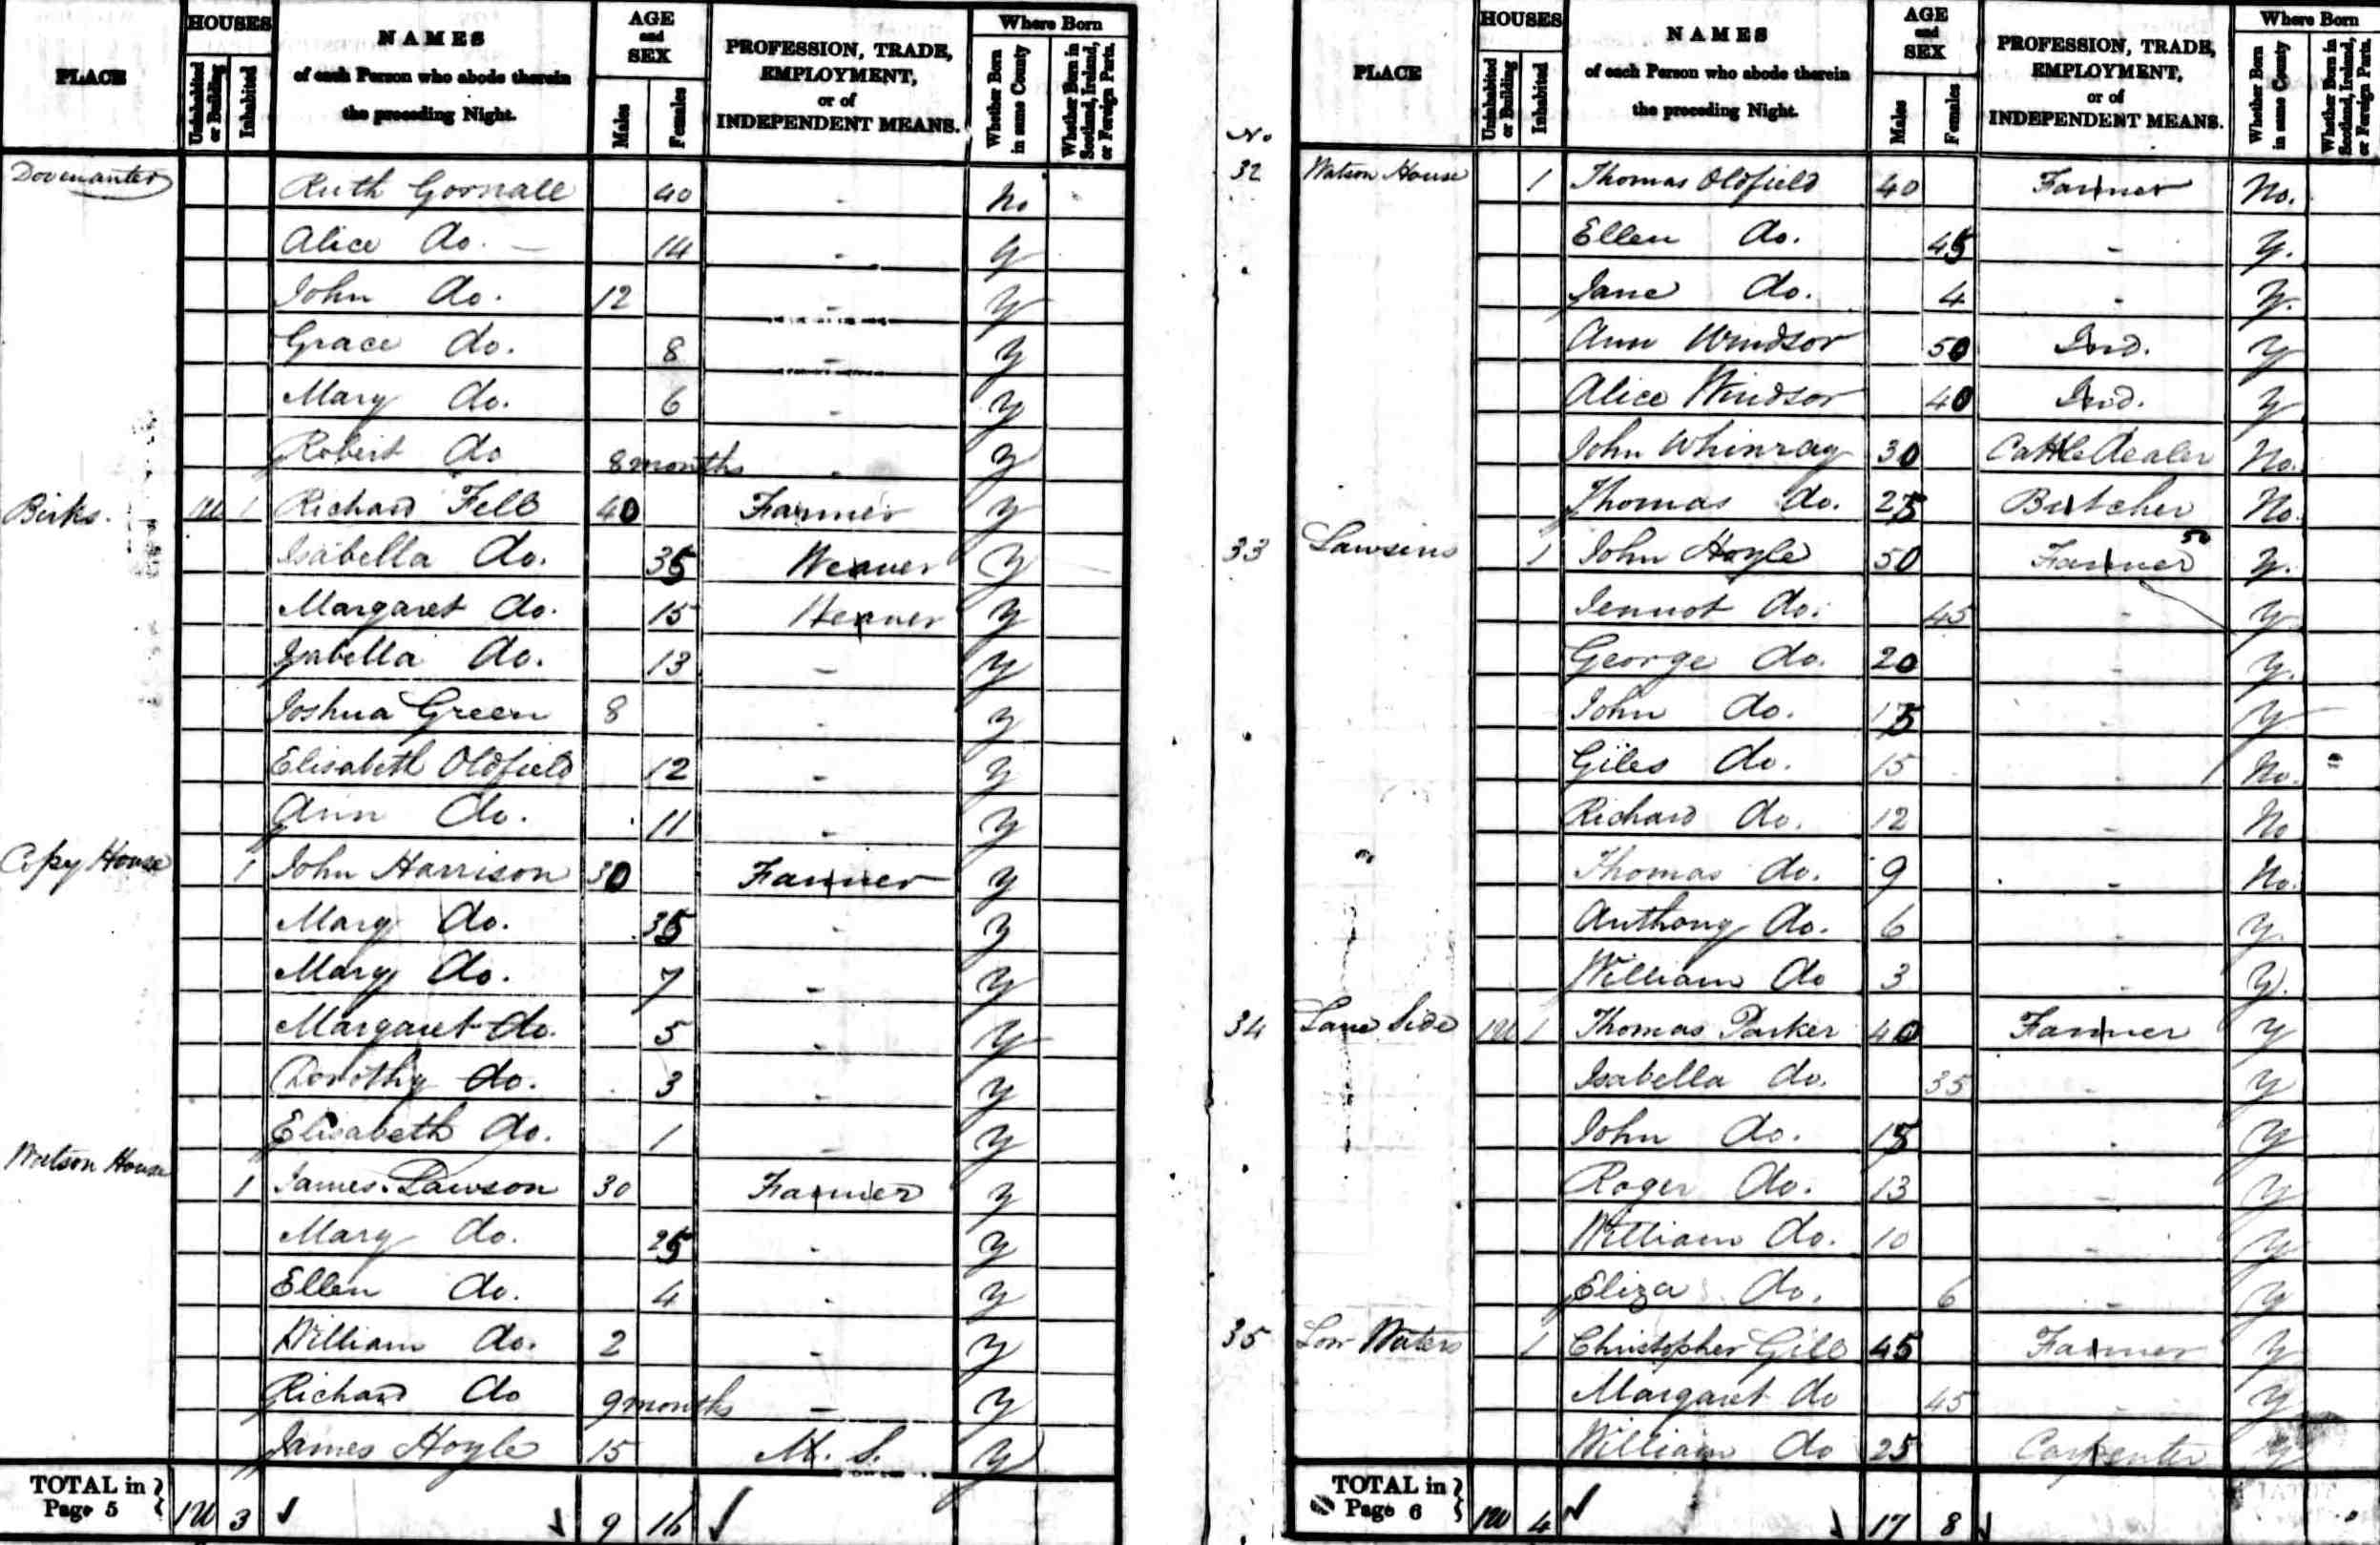 PLACE HOUSES Uninhabited or Building Inhabited NAMES of each Person who abode therein the preceding Night. AGE and SEX Males Females PROFESSION, TRADE, EMPLOYMENT, or of INDEPENDENT MEANS. Where Born Whether Born in same County Whether Born in Scotland, Ireland, or Foreign Parts.
Ruth Gornall 40 - No
Alice do. 14 - y
John do. 12 - y
Grace do. 8 - y
Mary do. 6 - y
Robert do 8 months - y
Birks. 1U 1 Richard Fell 40 Farmer y
Isabella do. 35 Weaver y
Margaret do. 15 Weaver y
Isabella do. 13 - y
Joshua Green 8 - y
Elisabeth Oldfield 12 - y
Ann do. 11 - y
Copy House 1 John Harrison 30 Farmer y
Mary do. 35 - y
Mary do. 7 - y
Margaret do. 5 - y
Dorothy do. 3 - y
Elisabeth do. 1 - y
Watson House 1 James Lawson 30 Farmer y
Mary do. 25 - y
Ellen do. 4 - y
William do. 2 - y
Richard do 9 months - y
James Hoyle 15 M. S. y
TOTAL in Page 5 1U 3 9 16
PLACE HOUSES Uninhabited or Building Inhabited NAMES of each Person who abode therein the preceding Night. AGE and SEX Males Females PROFESSION, TRADE, EMPLOYMENT, or of INDEPENDENT MEANS. Where Born Whether Born in same County Whether Born in Scotland, Ireland, or Foreign Parts.
No.
32 Watson House 1 Thomas Oldfield 40 Farmer No.
Ellen do. 45 - y.
Jane do. 4 - y.
Ann Windsor 50 Ind. y
Alice Windsor 40 Ind. y
John Whinray 30 Cattle dealer No.
Thomas do. 25 Butcher No.
33 Lawsons 1 John Hoyle 50 Farmer 50 y.
Jennot do. 45 - y
George do. 20 - y.
John do. 15 - y
Giles do. 15 - No.
Richard do. 12 - No
Thomas do. 9 - No.
Anthony do. 6 - y.
William do 3 - y.
34 Lane Side 1U 1 Thomas Parker 40 Farmer y
Isabella do. 35 - y
John do. 15 - y
Roger do. 13 - y
William do. 10 - y
Eliza do. 6 - y
35 Low Waters 1 Christopher Gill 45 Farmer y
Margaret do 45 - y
William do 25 Carpenter y
TOTAL in Page 6 1U 4 17 8